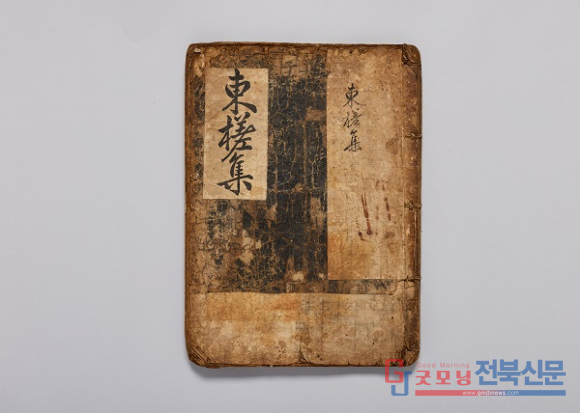 東槎集
東槎集
Good Morning
굿모닝전북신문
www.gmjbnews.com